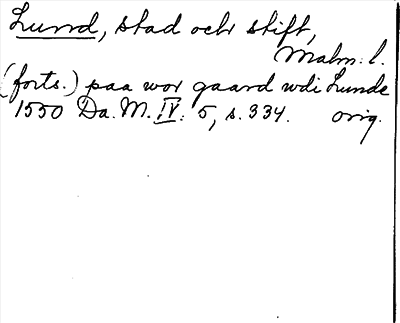 Lund, stad och stift,
Malm. l.
(forts.) paa wor gaard wdi Lunde
1550 Da. M. IV. 5, s. 334. orig.